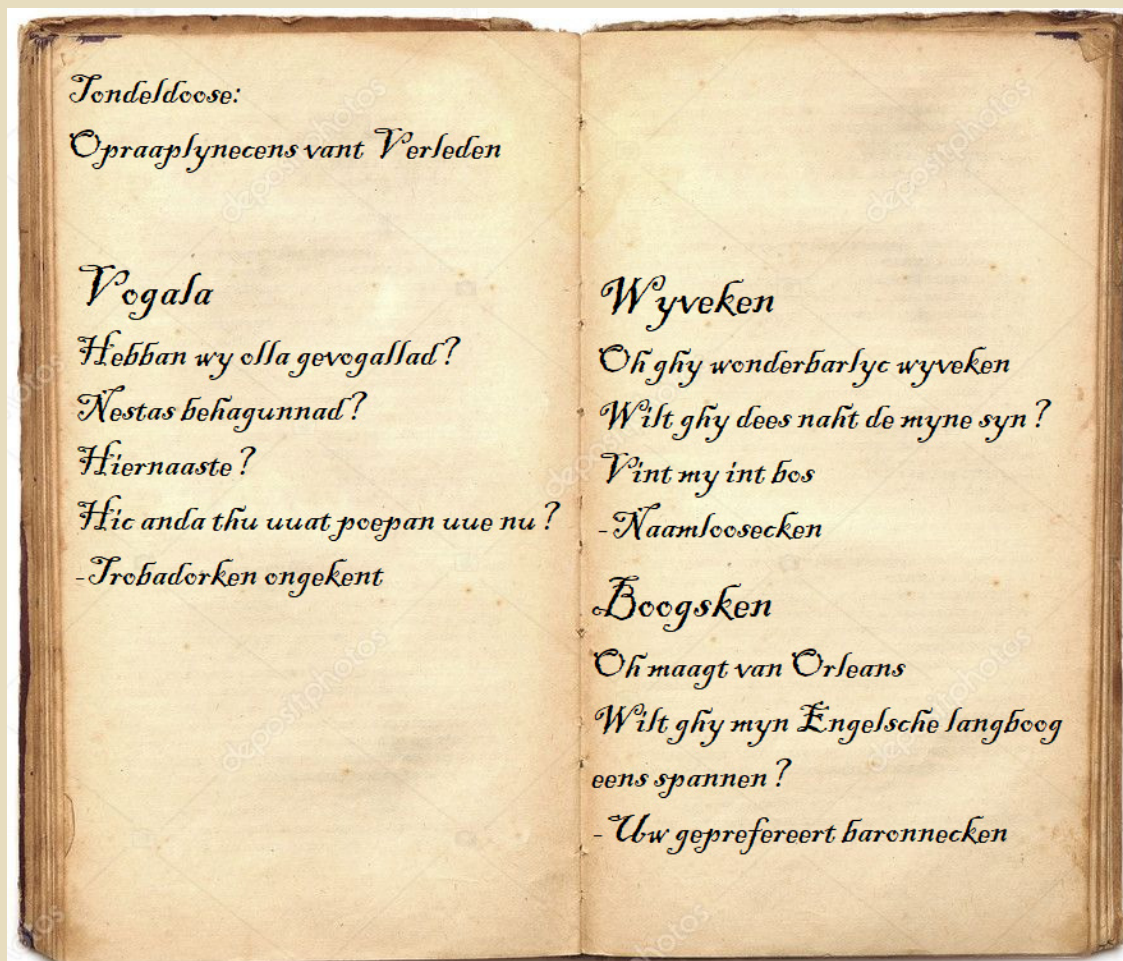 Tondeldoose:
Opraaplynecens vant Verleden
Vogala
Hebban wy olla gevogallad?
Nestas behagunnad?
Hiernaaste?
Hic anda thu uuat poepan uue nu?
-Trobadorken ongekent
Wyveken
Oh ghy wonderbarlyc wyveken
Wilt ghy dees naht de myne syn?
Vint my int bos
-Naamloosecken
Boogsken
Oh maagt van Orleans
Wilt ghy myn Engelsche langboog
eens spannen?
- Uw geprefereert baronnecken
depositphotos